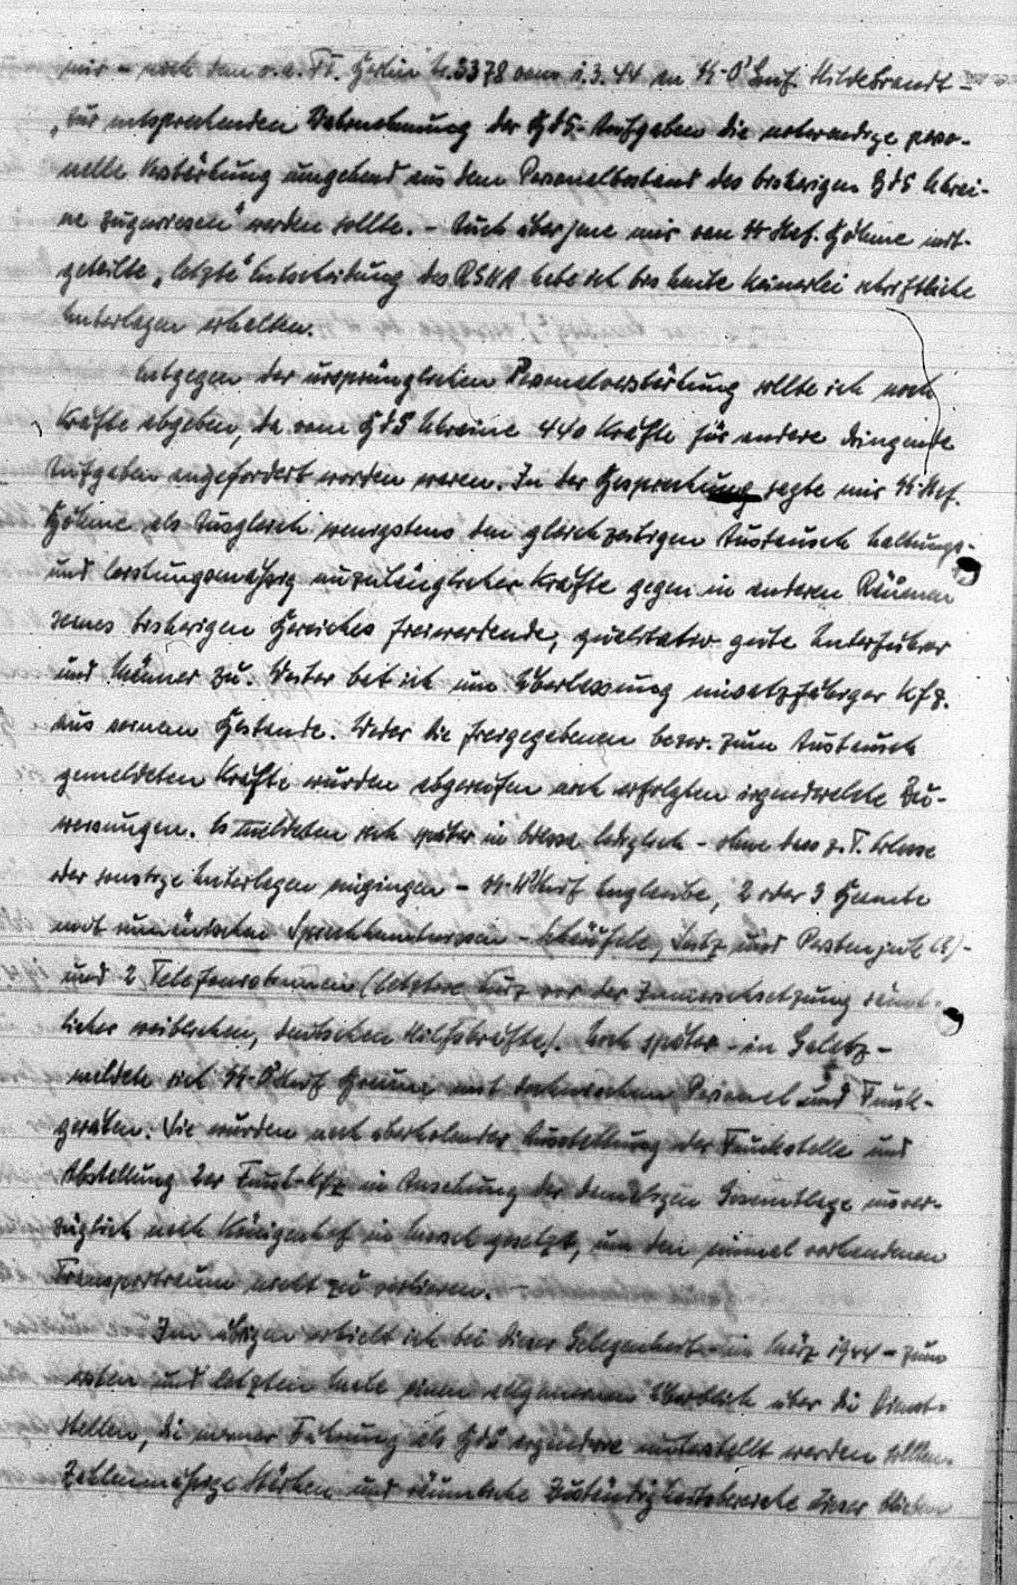 mir – nach dem o.a. FT. Berlin Nr. 3378 vom 1.3.44 an SS-O'Gruf. Hildebrandt –
„zur entsprechenden Wahrnehmung der BdS-Aufgaben die notwendige perso-
nelle Verstärkung umgehend aus dem Personalbestand des bisherigen BdS Ukrai-
ne zugewiesen" werden sollte. – Auch über jene mir von SS-Stef. Böhme mit-
geteilte „letzte" Entscheidung des RSHA habe ich bis heute keinerlei schriftliche
Unterlagen erhalten.
Entgegen der ursprünglichen Personalverstärkung sollte ich noch
Kräfte abgeben, da vom BdS Ukraine 440 Kräfte für andere dringende
Aufgaben angefordert worden waren. In der Besprechung sagte mir SS-Stef.
Böhme als Ausgleich wenigstens den gleichzeitigen Austausch haltungs-
und leistungsmäßig unzulänglicher Kräfte gegen in anderen Räumen
seines bisherigen Bereiches freiwerdende, qualitativ gute Unterführer
und Männer zu. Weiter bat ich um Überlassung einsatzfähiger Kfz.
aus seinem Bestande. Weder die freigegebenen bezw. zum Austausch
gemeldeten Kräfte wurden abgerufen noch erfolgten irgendwelche Zu-
weisungen. Es meldeten sich später in Odessa lediglich – ohne dass z.T. Erlasse
oder sonstige Unterlagen eingingen – SS- 2 oder 3 Beamte
mit rumänischen Sprachkenntnissen –
und 2 Telefonistinnen (letztere kurz vor der Inmarschsetzung sämt-
licher weiblichen, deutschen Hilfskräfte). Noch später – in Galatz –
meldete sich SS- mit technischem Personal und Funk-
geräten. Sie wurden nach Ausstattung der Funkstelle und
Abstellung der Funk-Kfz in Ansehung der damaligen Gesamtlage unver-
züglich nach Königenhof in Marsch gesetzt, um den einmal vorhandenen
Transportraum nicht zu verlieren.
Im übrigen erhielt ich bei dieser Gelegenheit – im März 1944 – zum
ersten und letzten Male einen allgemeinen Überblick über die Dienst-
stellen, die meiner Führung als BdS irgendwie unterstellt werden sollten.
Zahlenmäßige Stärken und räumliche Zuständigkeitsbereiche dieser blieben